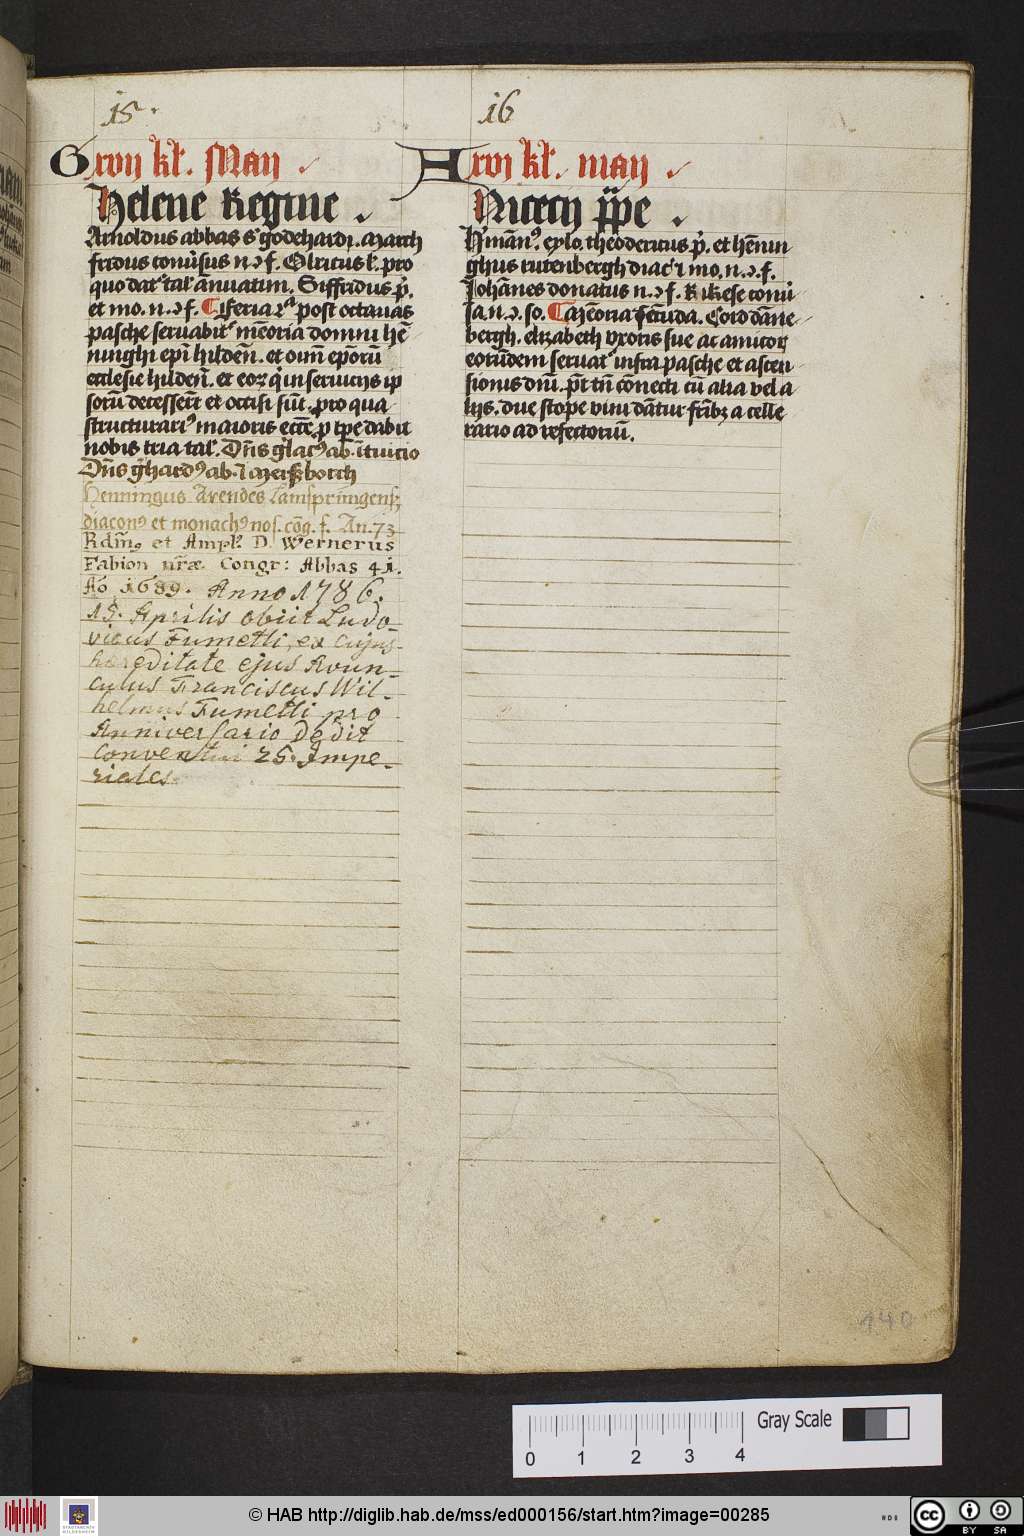 15.
G xvij kł. Maij
Helene Regine.
Arnoldus abbas s' godehardi. March
fridus conu͛sus n. ⁊ f. Olricus ł. pro
quo dat͛ tal͛ annuatim. Siffridus p͛.
et mo. n. ⁊ f. feria 2ª post octauas
pasche seruabit͛ mēoria domini hē
ninghi ep̄i hildeñ. et oīm ep̄orū
ecclesie hildeñ. et eoꝝ q̇ in seruicijs ip
sorū decesser̄t et occisi sūt. pro qua
structurariꝰ maioris ecc̄e. p tꝑe dabit
nobis tria tal͛.
Dn̄s gh̄ardꝰ ab. ī
Henningus Arendes Lamspringensꝫ
diaconꝰ et monachꝰ nos. cōg. f. An. 73
Rdm̄ꝰ et Ampl. D. Wernerus
Fabion nr̄æ. Congr: Abbas 41.
Aō 1689. Anno 1786.
15. Aprilis obiit Ludo-
vicus Fumetti, ex cujus
hæreditate ejus Avun-
culus Franciscus Wil-
helmus Fumetti pro
Anniversario dedit
Conventui 25. Impe-
riales.
16
A xvj kł. maij
Nicecij pp̄e.
H'mānꝰ. eylo. theodericus p͛. et hēnin
ghus rutenbergh diac' ⁊ mo. n. ⁊ f.
Johānes donatus n. ⁊ f. Rikese conu͛
sa. n. ⁊ so. Mēoria secūda. Cord dāne
bergh. elizabeth vxoris sue ac amicoꝝ
eorūdem seruat͛ infra pasche et ascen
sionis dn̄i. p̄t tn̄ cōnecti cū alia vel a
lijs. due stope vini dātur fr̄ibꝫ a celle
rario ad refectoriū.
140
0 1 2 3 4
Gray Scale
© HAB http://diglib.hab.de/mss/ed000156/start.htm?image=00285
cc BY SA